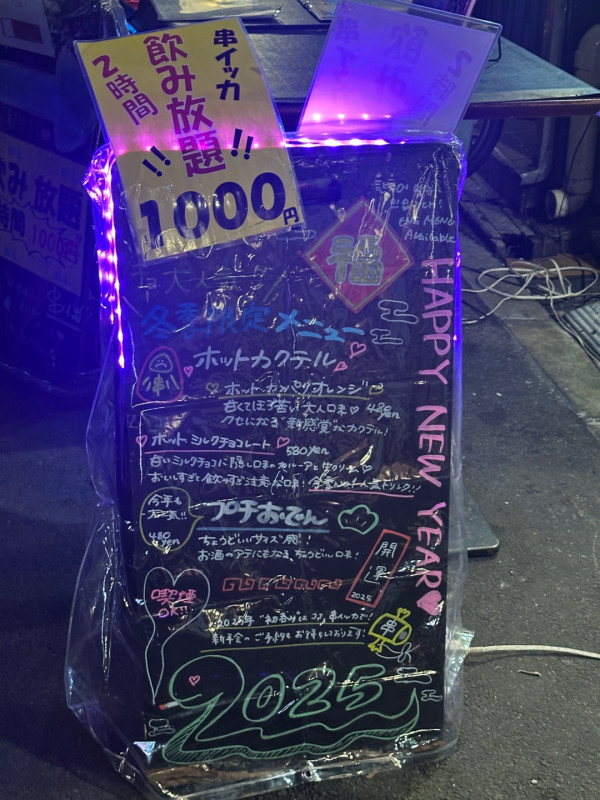 串イッカ
飲み放題
2時間
!! !!
1000円
飲み放題
時間 1000円
福
Eng MENU
Available
HAPPY NEW YEAR
冬季限定メニュー
ホットカクテル
串
ホットカンパリオレンジ
甘くてほろ苦い大人口味 480yen
クセになる新感覚なカクテル!
ホットミルクチョコレート 580yen
甘いミルクチョコに隠し口味の
おいしすぎて飲みすぎ注意な口味!
今季も
大人気!!
480yen
プチおでん
ちょうどいいサイズ感!!
お酒のアテにもなる、ちょうどいい口味!
開運
2025
喫煙
OK!!
2025年"初呑み"はココ串イッカで!
新年会のご予約もお待ちしております!
串
2025